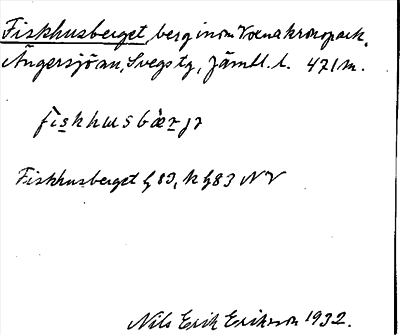 Fiskhusberget, berg inom Voxna kronopark,
Ängersjö sn, Svegs tg, Jämtl. l. 471 m.
fiskhusbærjr
Fiskhusberget G 83, K G83 NV
Nils Erik Eriksson 1932.